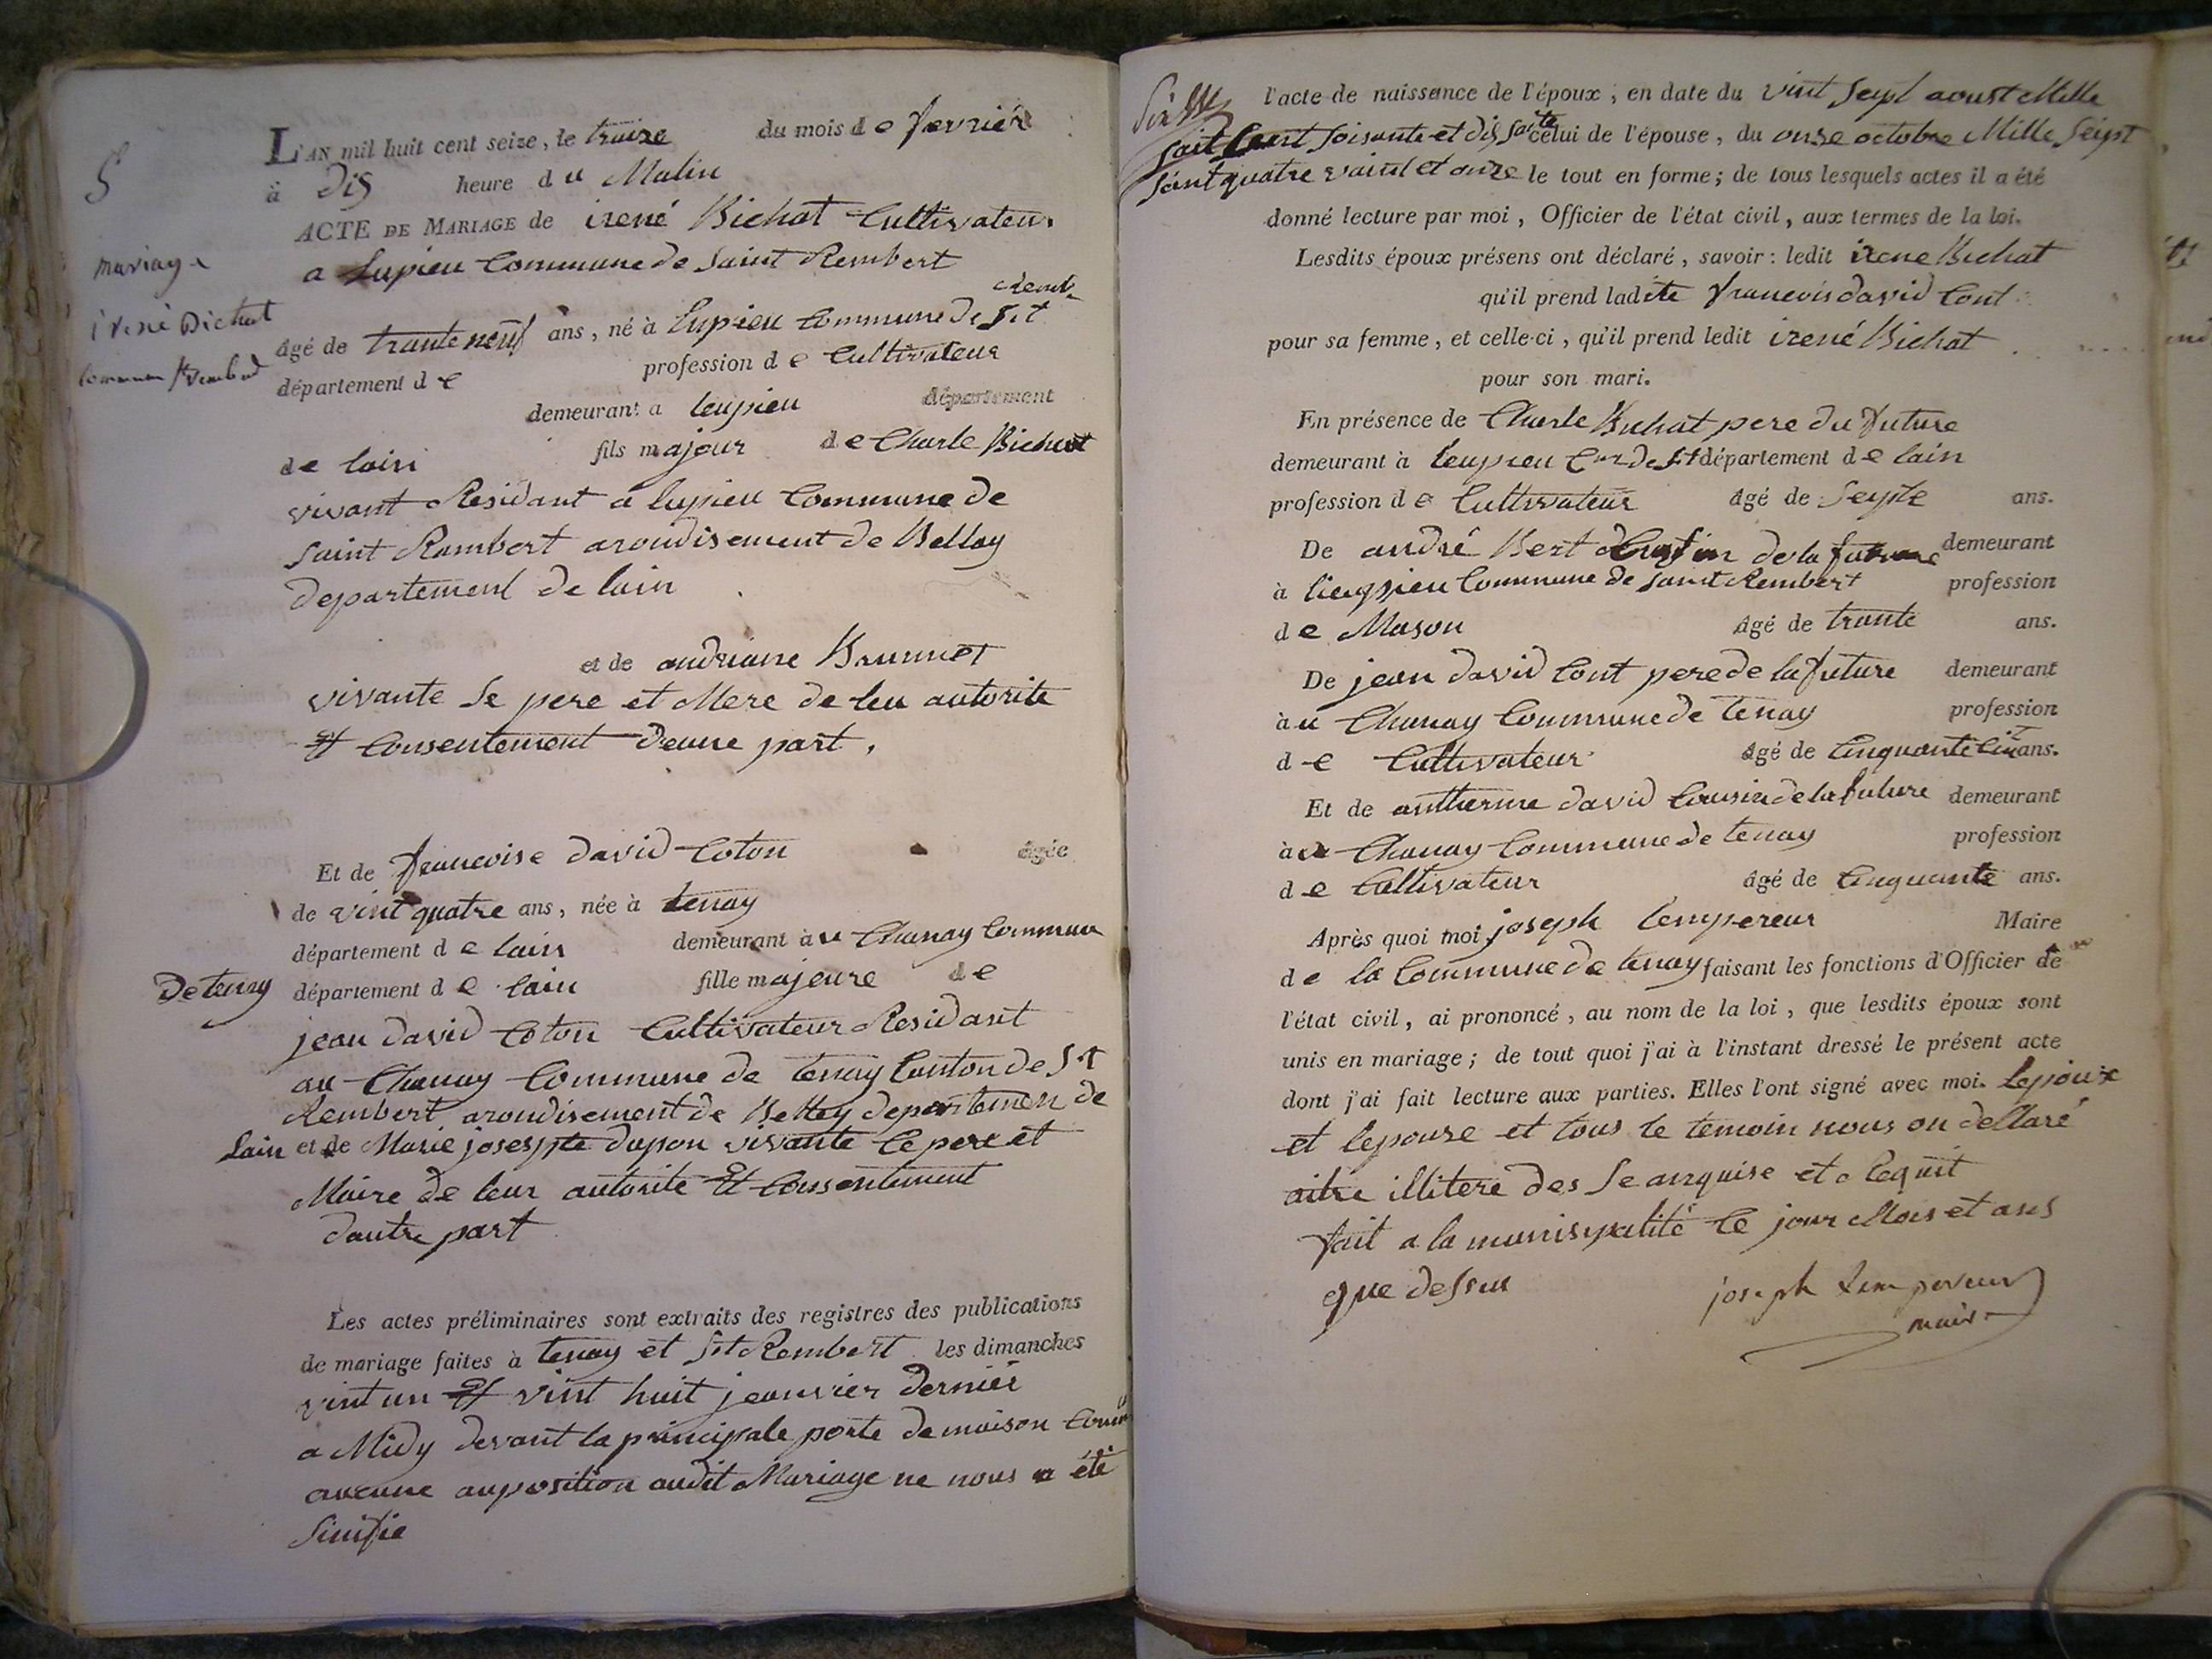 5
mariage
irené Bichat
commune St rembert
L'AN mil huit cent seize, le traize du mois de fevrier
à dis heure du Matin
ACTE DE MARIAGE de irené Bichat Cultivateur
a Lupieu Commune de Saint Rembert
âgé de trante neuf ans, né à lupieu Commune de St
département de profession de Cultivateur
demeurant a leupieu département
de lain fils majeur de Charle Bichat
vivant Residant a lupieu Commune de
Saint Rambert arondisement de Belley
departement de lain
et de andriane Brunnet
vivante Se pere et Mere de leu autorite
et Consentement deune part,
Et de francoise david Coton âgée
de vint quatre ans, née à tenay
département de lain demeurant à u Chanay Commune
de tenay département de lain fille majeure de
jean david Coton Cultivateur Residant
au Chanay Commune de tenay Canton de St
Rembert arondisement de Belley departemen de
lain et de Marie josespte dupon vivante Ce pere et
Maire de leur autorite et Consentement
dautre part
Les actes préliminaires sont extraits des registres des publications
de mariage faites à tenay et St Rembert les dimanches
vint un et vint huit jeanvier dernier
a Midy devant la principale porte de maison Comu
aucune auposition audit Mariage ne nous a été
Sinifie
l'acte de naissance de l'époux, en date du vint Sept aoust Mille
Sait Cent Soisante et dis Saite celui de l'épouse, du onze octobre Mille Seipt
Sant quatre vaint et onze le tout en forme; de tous lesquels actes il a été
donné lecture par moi, Officier de l'état civil, aux termes de la loi.
Lesdits époux présens ont déclaré, savoir: ledit irene Bichat
qu'il prend ladite francois david Cont
pour sa femme, et celle-ci, qu'il prend ledit irené Bichat
pour son mari.
En présence de Charle Bichat pere du future
demeurant à leupieu Cne de St département de lain
profession de Cultivateur âgé de Septe ans.
De andré Bert de la future demeurant
à lieupieu Commune de Saint Rembert profession
de Mason âgé de trante ans.
De jean david Cont pere de la future demeurant
à u Chanay Commune de tenay profession
de Cultivateur âgé de Cinquante Cint ans.
Et de antherme david Cousin de la future demeurant
à u Chanay Commune de tenay profession
de Cultivateur âgé de Cinquante ans.
Après quoi moi joseph lempereur Maire
de la Commune de tenay faisant les fonctions d'Officier de
l'état civil, ai prononcé, au nom de la loi, que lesdits époux sont
unis en mariage; de tout quoi j'ai à l'instant dressé le présent acte
dont j'ai fait lecture aux parties. Elles l'ont signé avec moi. lepoux
et lepouse et tous le temoin nous on dellaré
aitre illitere des Se anquise et Requit
fait a la munisipalité Ce jour Mois et ans
que dessu
joseph Lempereur
maire